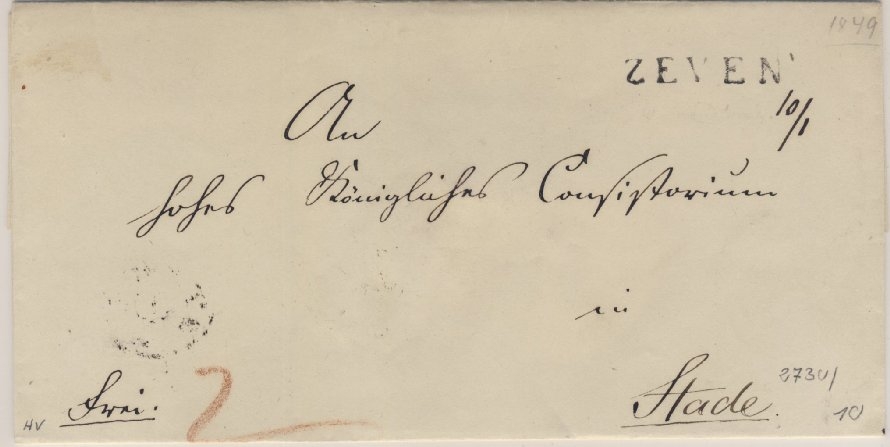 1849
ZEVEN
10/1
An
hohes Königliches Consistorium
in
Stade.
2730/
10
Frei.
HV